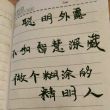 聪明外露
不如智慧深藏
做个糊涂的
精明人